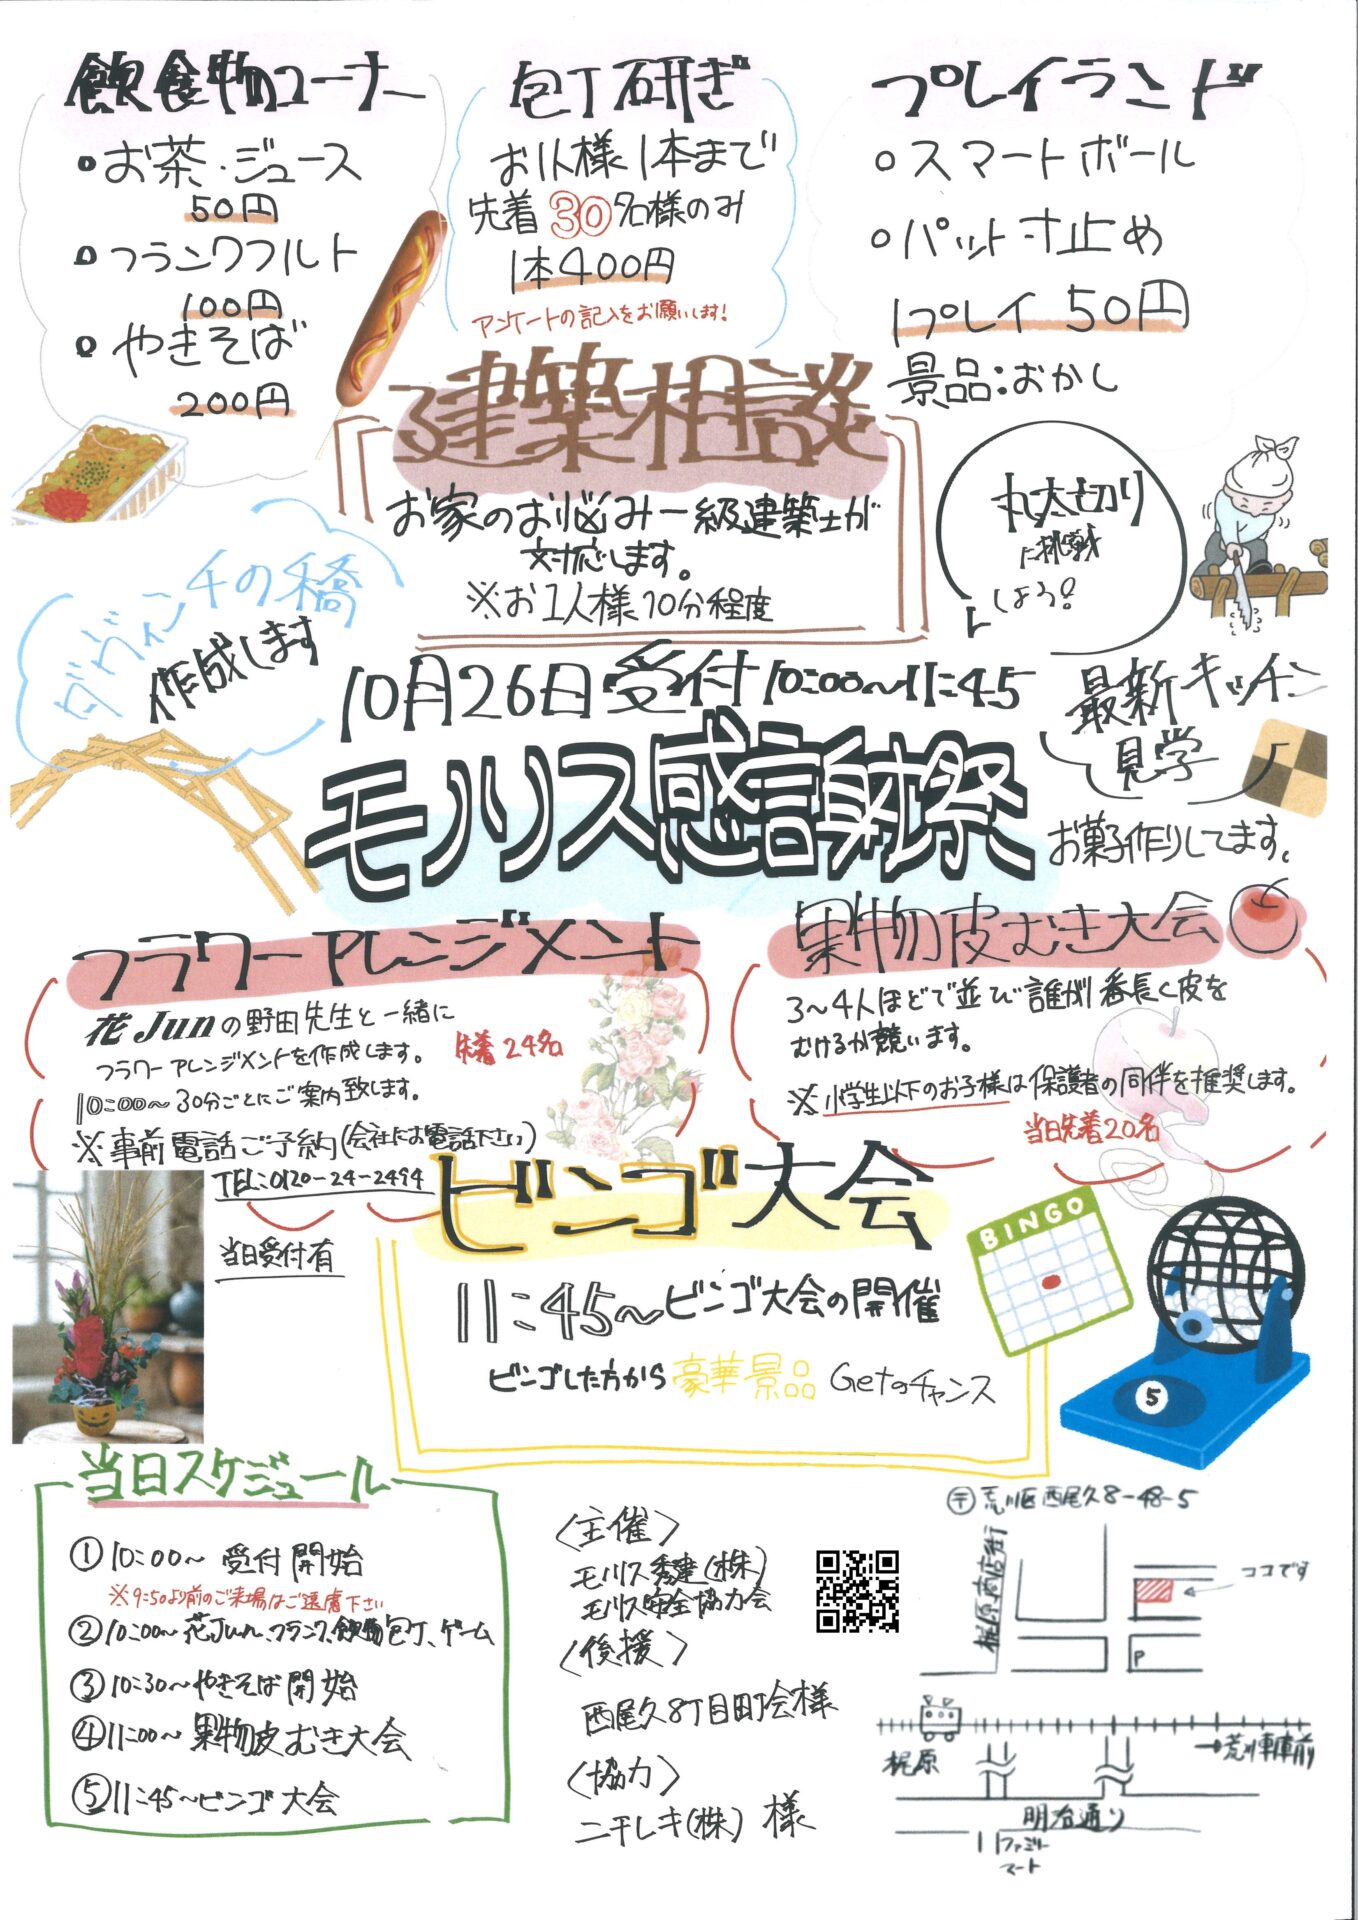 飲食物コーナー
・お茶・ジュース
50円
・フランクフルト
100円
・やきそば
200円
包丁研ぎ
お1人様1本まで
先着30名様のみ
1本400円
アンケートの記入をお願いします!
プレイランド
○スマートボール
○パット寸止め
1プレイ 50円
景品:おかし
建築相談
お家のお悩み一級建築士が
対応します。
※お1人様10分程度
丸太切り
に挑戦
しよう!
ダヴィンチの橋
作成します
10月26日受付10:00~11:45
モノリス感謝祭
最新キッチン
見学
お菓子作りしてます。
フラワーアレンジメント
花Junの野田先生と一緒に
フラワーアレンジメントを作成します。
先着24名
10:00~30分ごとにご案内致します。
※事前電話ご予約(会社にお電話下さい)
TEL:0120-24-2494
当日受付有
果物皮むき大会
3~4人ほどで並び誰が1番長く皮を
むけるか競います。
※小学生以下のお子様は保護者の同伴を推奨します。
当日先着20名
ビンゴ大会
11:45~ビンゴ大会の開催
ビンゴした方から豪華景品Getのチャンス
BINGO
5
当日スケジュール
①10:00~受付開始
※9:50より前のご来場はご遠慮下さい
②10:00~花Jun、フランク、飲物、包丁、ゲーム
③10:30~やきそば開始
④11:00~果物皮むき大会
⑤11:45~ビンゴ大会
〈主催〉
モノリス秀建(株)
モノリス安全協力会
〈後援〉
西尾久8丁目町会様
〈協力〉
ニチレキ(株)様
〒荒川区西尾久8-48-5
梶原商店街
ココです
P
梶原
→荒川車庫前
明治通り
ファミリー
マート